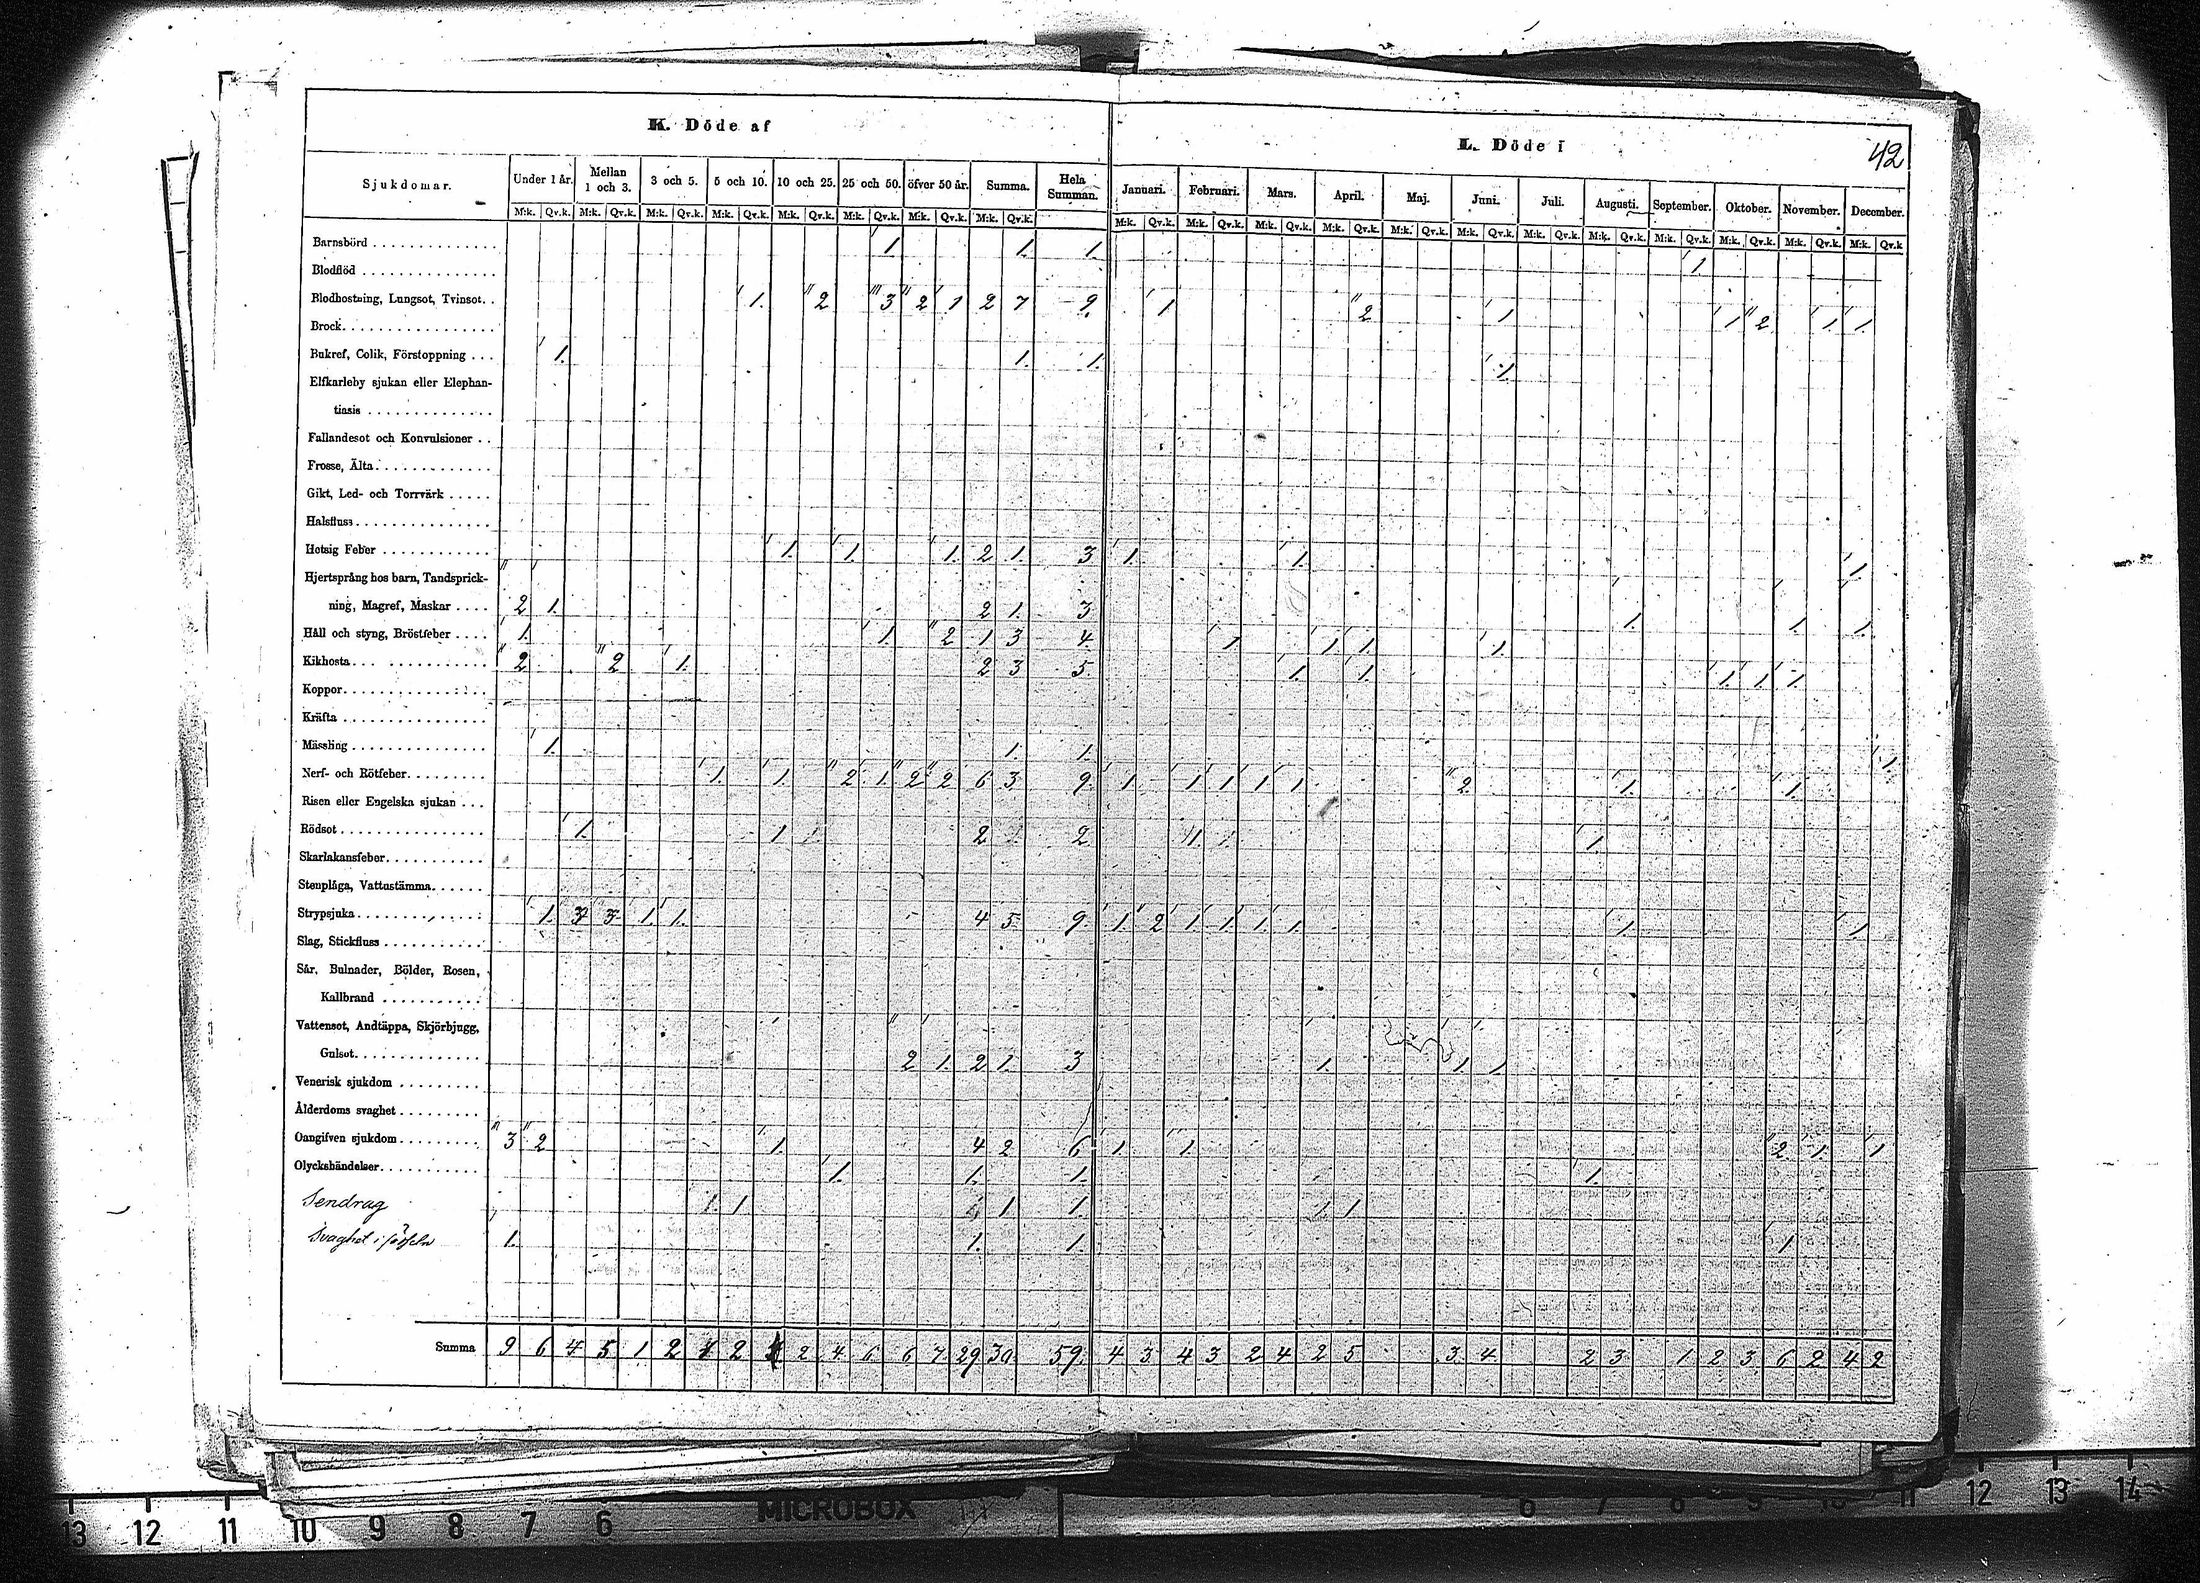 K. Döde af
L. Döde i
42
Sjukdomar. Under 1 år. Mellan 1 och 3. 3 och 5. 5 och 10. 10 och 25. 25 och 50. öfver 50 år. Summa. Hela Summan. Januari. Februari. Mars. April. Maj. Juni. Juli. Augusti. September. Oktober. November. December.
M:k. Qv.k. M:k. Qv.k. M:k. Qv.k. M:k. Qv.k. M:k. Qv.k. M:k. Qv.k. M:k. Qv.k. M:k. Qv.k. M:k. Qv.k. M:k. Qv.k. M:k. Qv.k. M:k. Qv.k. M:k. Qv.k. M:k. Qv.k. M:k. Qv.k. M:k. Qv.k. M:k. Qv.k. M:k. Qv.k. M:k. Qv.k. M:k. Qv.k
Barnsbörd 1 1. 1. 1
Blodflöd
Blodhostning, Lungsot, Tvinsot. 1. 2 3 2 1 2 7 9. 1 2 1 1 2 1 1.
Brock
Bukref, Colik, Förstoppning 1. 1. 1. 1.
Elfkarleby sjukan eller Elephan-
tiasis
Fallandesot och Konvulsioner
Frosse, Älta
Gikt, Led- och Torrvärk
Halsfluss
Hetsig Feber 1. 1. 1. 2 1. 3 1. 1. 1.
Hjertsprång hos barn, Tandsprick-
ning, Magref, Maskar 2 1. 2 1. 3 1. 1. 1.
Håll och styng, Bröstfeber 1. 1. 2 1 3 4. 1. 1 1. 1.
Kikhosta 2 2 1. 2 3 5. 1. 1. 1. 1. 1.
Koppor
Kräfta
Mässling 1. 1. 1. 1.
Nerf- och Rötfeber 1. 1. 2 1. 2 2 6 3 9. 1. 1 1 1 1 2. 1. 1.
Risen eller Engelska sjukan
Rödsot 1. 1 2 2 1 1.
Skarlakansfeber
Stenplåga, Vattustämma
Strypsjuka 1. 3 3 1. 1. 4 5 9. 1 2 1 1 1. 1. 1. 1.
Slag, Stickfluss
Sår, Bulnader, Bölder, Rosen,
Kallbrand
Vattensot, Andtäppa, Skjörbjugg,
Gulsot 2 1. 2 1. 3 1. 1 1
Venerisk sjukdom
Ålderdoms svaghet
Oangifven sjukdom 3 2 1. 4 2 6 1. 1. 2 1. 1
Olyckshändelser 1. 1. 1. 1.
Sendrag 1 1 1. 1
Svaghet i 1. 1. 1. 1
Summa 9 6 4 5 1 2 2 2 4 6 6 7 29 30 59. 4 3 4 3 2 4 2 5 3 4 2 3 1 2 3 6 2 4 2
MICROBOX
13 12 11 10 9 8 7 6 6 7 8 9 10 11 12 13 14